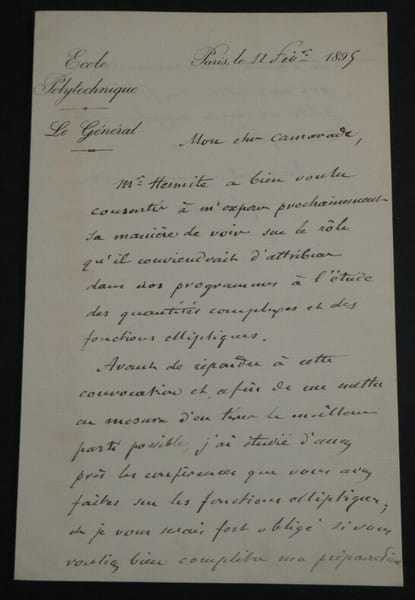 Ecole
Polytechnique
Le Général
Paris, le 11 Févr 1895
Mon cher camarade,
Mr Hermite a bien voulu
consentir à m'exposer prochainement
sa manière de voir sur le rôle
qu'il conviendrait d'attribuer
dans nos programmes à l'étude
des quantités complexes et des
fonctions elliptiques.
Avant de répondre à cette
convocation et, afin de me mettre
en mesure d'en tirer le meilleur
parti possible, j'ai étudié d'assez
près les conférences que vous avez
faites sur les fonctions elliptiques,
et je vous serais fort obligé si vous
vouliez bien compléter ma préparation